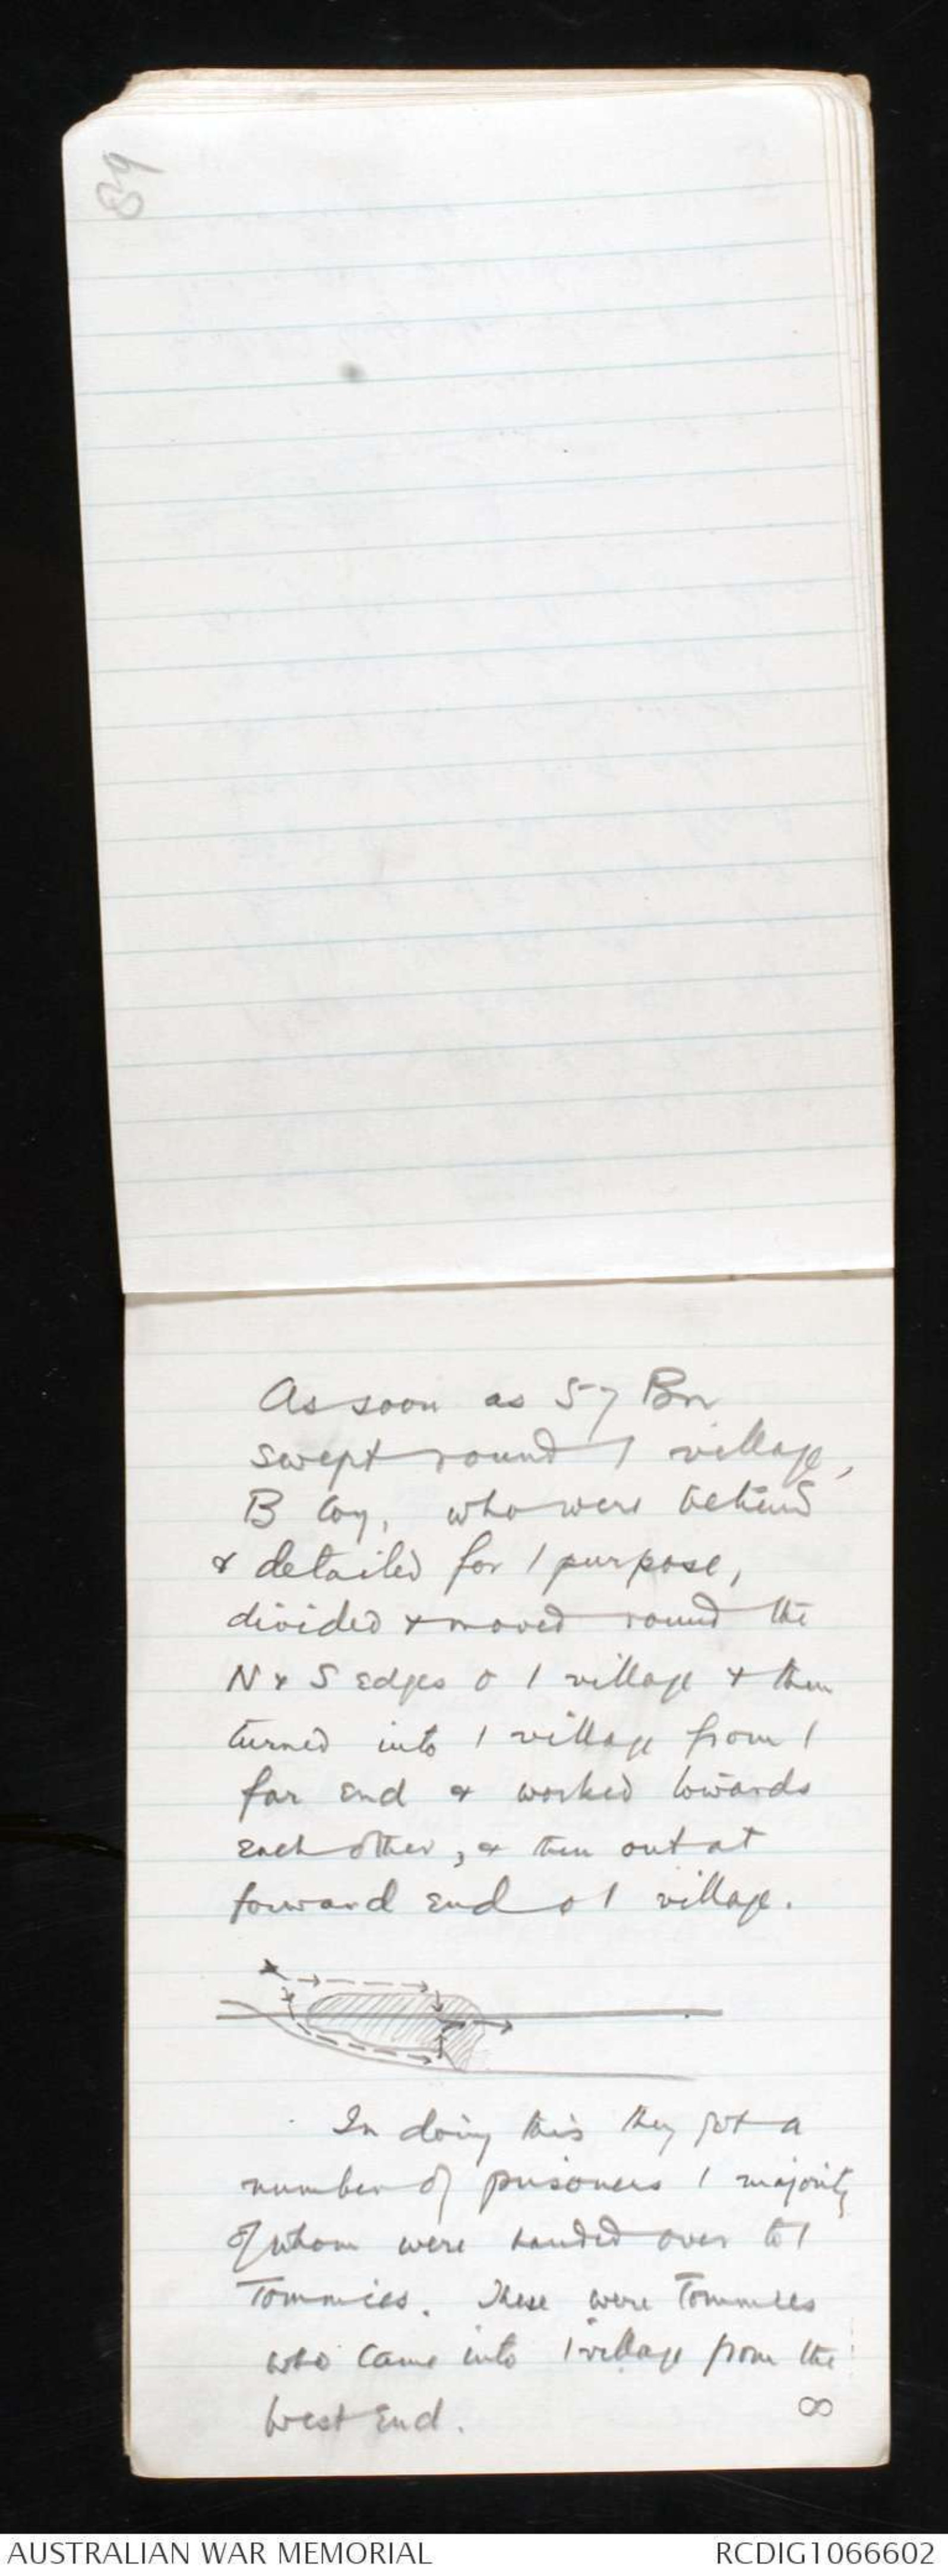 As soon as 57 Bn
swept round / village,
B Coy, who were behind
& detailed for / purpose,
divided & moved round the
N & S edges o / village & then
turned into / village from /
far end & worked towards
each other, & then out at
forward end o / village.
In doing this they got a
number of prisoners / majority
of whom were handed over to /
Tommies. These were Tommies
who came into / village from the
West End.
AUSTRALIAN WAR MEMORIAL
RCDIG1066602